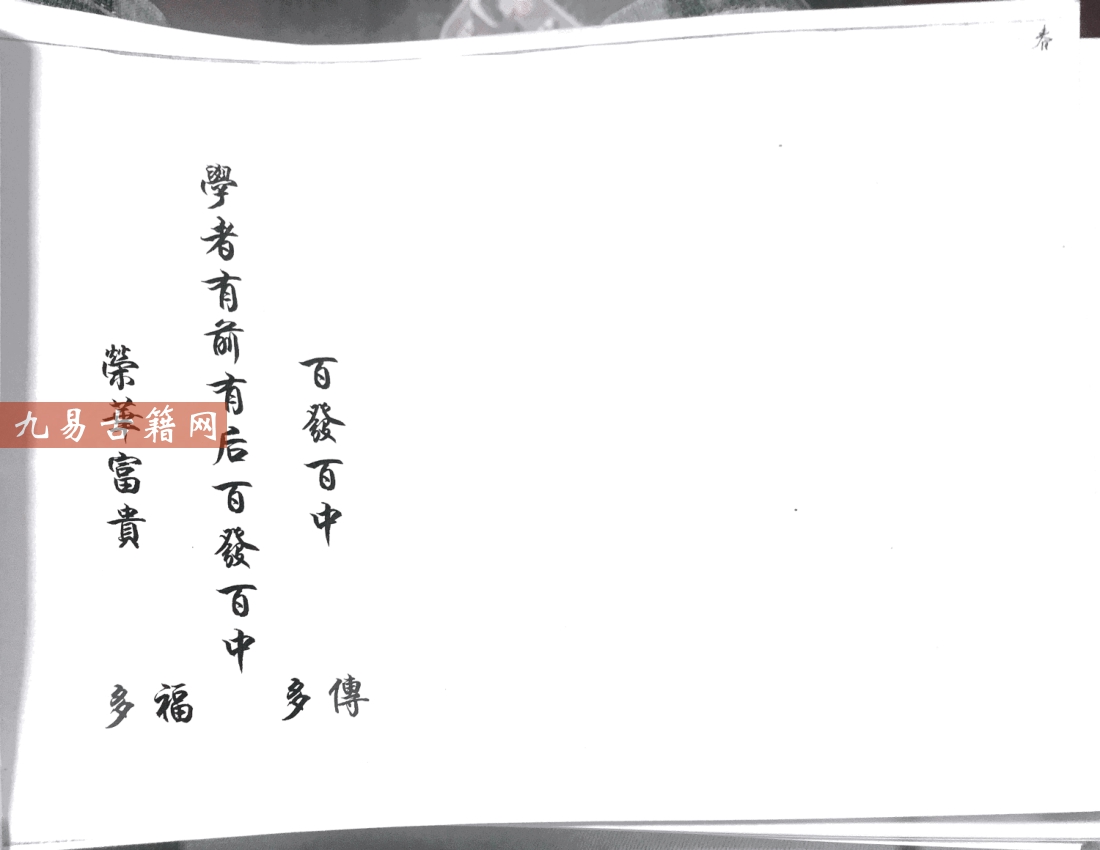 春
百發百中
學者有前有后百發百中
榮華富貴
傳多
福多
九易古籍网